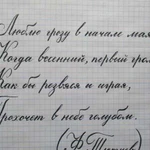 Люблю грозу в начале мая
Когда весенний, первый гром
Как бы резвяся и играя,
Грохочет в небе голубом.
(Ф. Тютчев